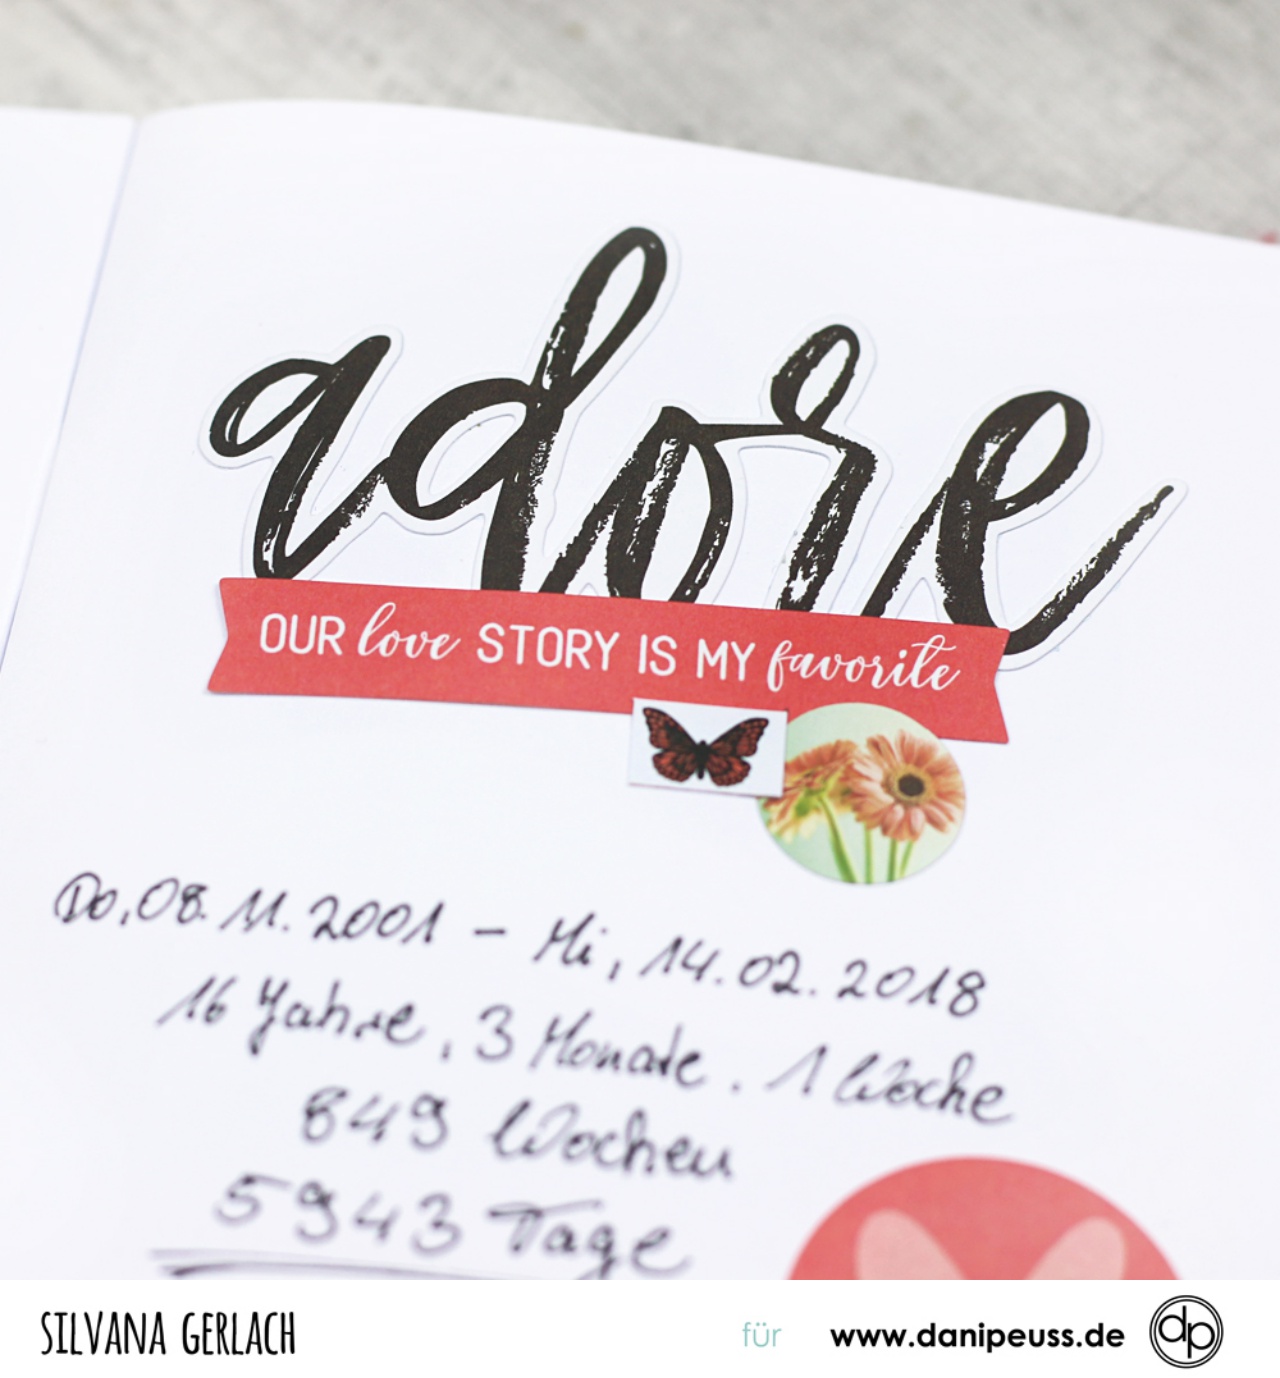 adore
OUR love STORY IS MY favorite
Do, 08.11.2001 – Mi, 14.02.2018
16 Jahre, 3 Monate, 1 Woche
849 Wochen
5943 Tage
SILVANA GERLACH
für
www.danipeuss.de
dp